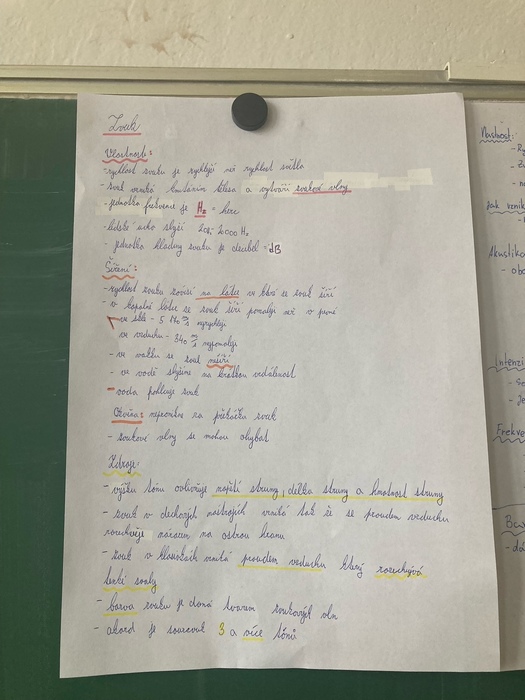 Zvuk
Vlastnosti:
-rychlost zvuku je rychlejší než rychlost světla
-zvuk vzniká kmitáním tělesa a vytváří zvukové vlny
-jednotka frekvence je Hz = herz
-lidské ucho slyší 20 20000 Hz
- jednotka hladiny zvuku je decibel = dB
Šíření:
-rychlost zvuku závisí na látce ve které se zvuk šíří
- v kapalné látce se zvuk šíří pomaleji než v pevné
ve skle - 5 nejrychleji
ve vzduchu - 340 m/s nejpomaleji
- ve vakuu se zvuk nešíří
- ve vodě slyšíme na krátkou vzdálenost
- voda pohlcuje zvuk
Ozvěna: na překážku zvuk
- zvukové vlny se mohou ohýbat
Zdroje
- výšku tónu ovlivňuje napětí struny, délka struny a hmotnost struny
- zvuk v dechových nástrojích vzniká tak že se proudem vzduchu
rozechvěje nárazem na ostrou hranu
- zvuk v hlasivkách vzniká proudem vzduchu který rozechvívá
tenké svaly
- barva zvuku je daná tvarem zvukových vln
- akord je souzvuk 3 a více tónů
Vlastnosti:
Jak
Akustika
Intenzi
Frekve